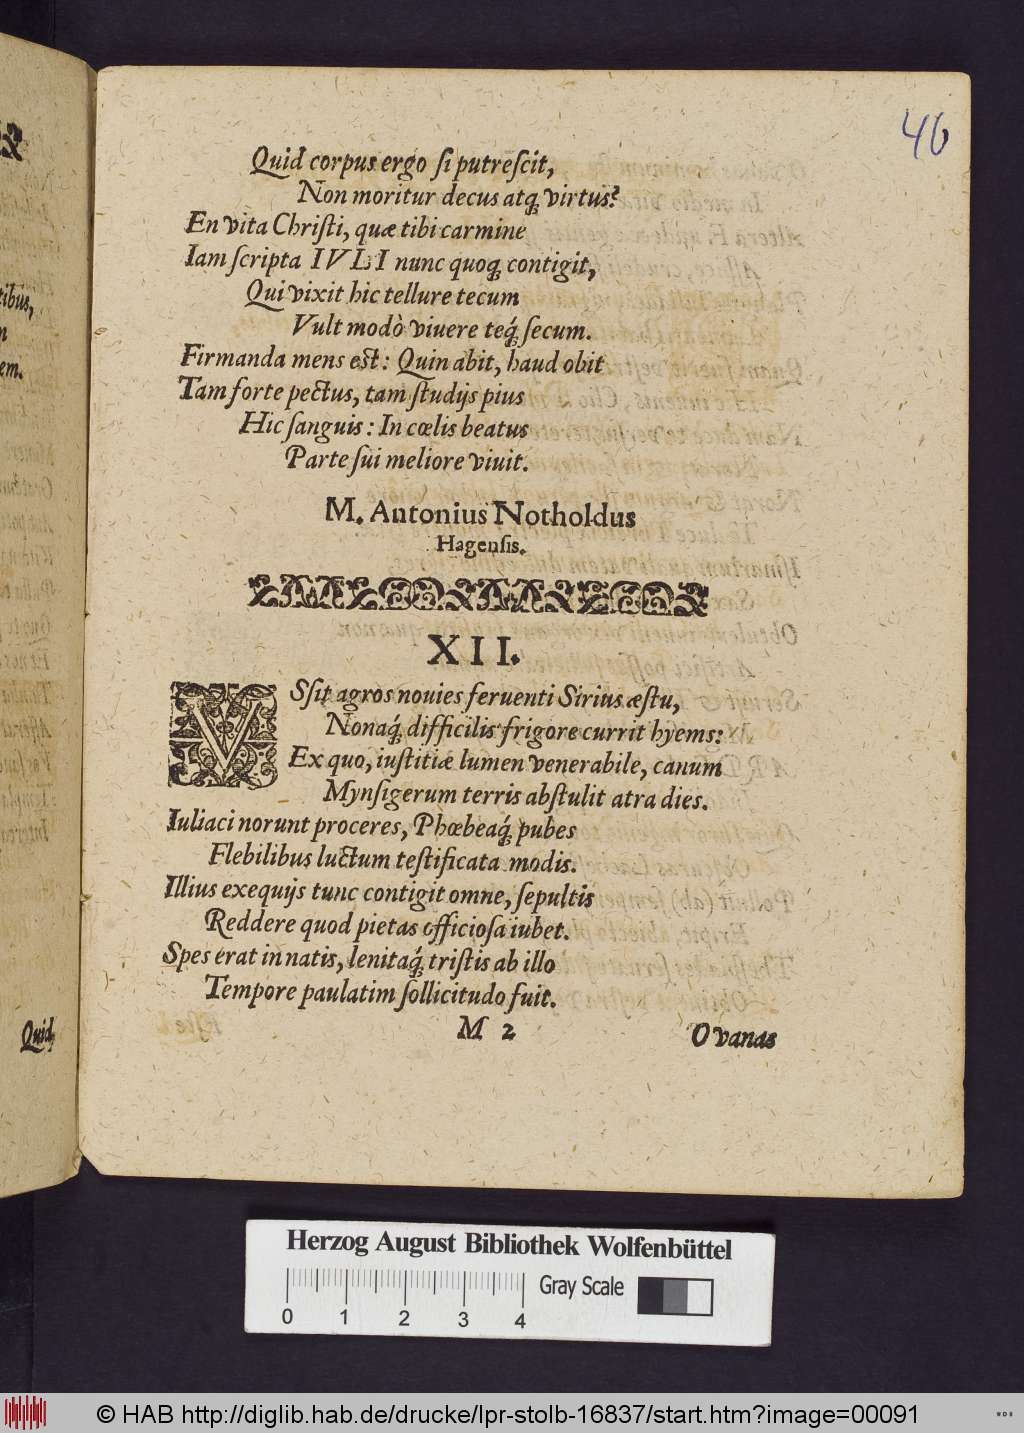 46
Quid corpus ergo ſi putreſcit,
Non moritur decus atq́ virtus?
En vita Chriſti, quæ tibi carmine
Iam ſcripta IVLI nunc quoq́ contigit,
Qui vixit hic tellure tecum
Vult modò viuere teq́ ſecum.
Firmanda mens est: Quin abit, haud obit
Tam forte pectus, tam ſtudijs pius
Hic ſanguis: In cœlis beatus
Parte ſui meliore viuit.
M. Antonius Notholdus
Hagenſis.
XII.
VSſit agros nouies feruenti Sirius æſtu,
Nonaq́ difficilis frigore currit hyems:
Ex quo, iuſtitiæ lumen venerabile, canum
Mynſigerum terris abſtulit atra dies.
Iuliaci norunt proceres, Phœbeaq́ pubes
Flebilibus luctum teſtificata modis.
Illius exequijs tunc contigit omne, ſepultis
Reddere quod pietas officioſa iubet.
Spes erat in natis, lenitaq́ triſtis ab illo
Tempore paulatim ſollicitudo fuit.
M 2
O vanas
tibus,
em.
Quid
Herzog August Bibliothek Wolfenbüttel
Gray Scale
0 1 2 3 4
© HAB http://diglib.hab.de/drucke/lpr-stolb-16837/start.htm?image=00091